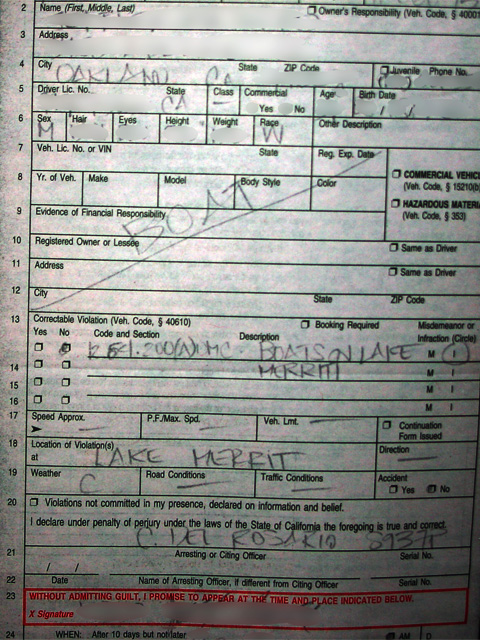 2 Name (First, Middle, Last) Owner's Responsibility (Veh. Code, § 40001
3 Address
4 City State ZIP Code Juvenile Phone No.
OAKLAND CA
5 Driver Lic. No. State Class Commercial Age Birth Date
CA Yes No
6 Sex Hair Eyes Height Weight Race Other Description
M W
7 Veh. Lic. No. or VIN State Reg. Exp. Date
COMMERCIAL VEHIC
(Veh. Code, § 15210(b)
8 Yr. of Veh. Make Model Body Style Color
HAZARDOUS MATERI
(Veh. Code, § 353)
BOAT
9 Evidence of Financial Responsibility
10 Registered Owner or Lessee Same as Driver
11 Address Same as Driver
12 City State ZIP Code
13 Correctable Violation (Veh. Code, § 40610) Booking Required Misdemeanor or
Yes No Code and Section Description Infraction (Circle)
BOATS ON LAKE M I
14 MERRITT M I
15 M I
16 M I
17 Speed Approx. P.F./Max. Spd. Veh. Lmt. Continuation
Form Issued
18 Location of Violation(s) Direction
at LAKE MERRIT
19 Weather Road Conditions Traffic Conditions Accident
C Yes No
20 Violations not committed in my presence, declared on information and belief.
I declare under penalty of perjury under the laws of the State of California the foregoing is true and correct.
C. DEL ROSARIO 8937P
21 Arresting or Citing Officer Serial No.
/ /
22 Date Name of Arresting Officer, if different from Citing Officer Serial No.
23 WITHOUT ADMITTING GUILT, I PROMISE TO APPEAR AT THE TIME AND PLACE INDICATED BELOW.
X Signature
24 WHEN: After 10 days but not later AM